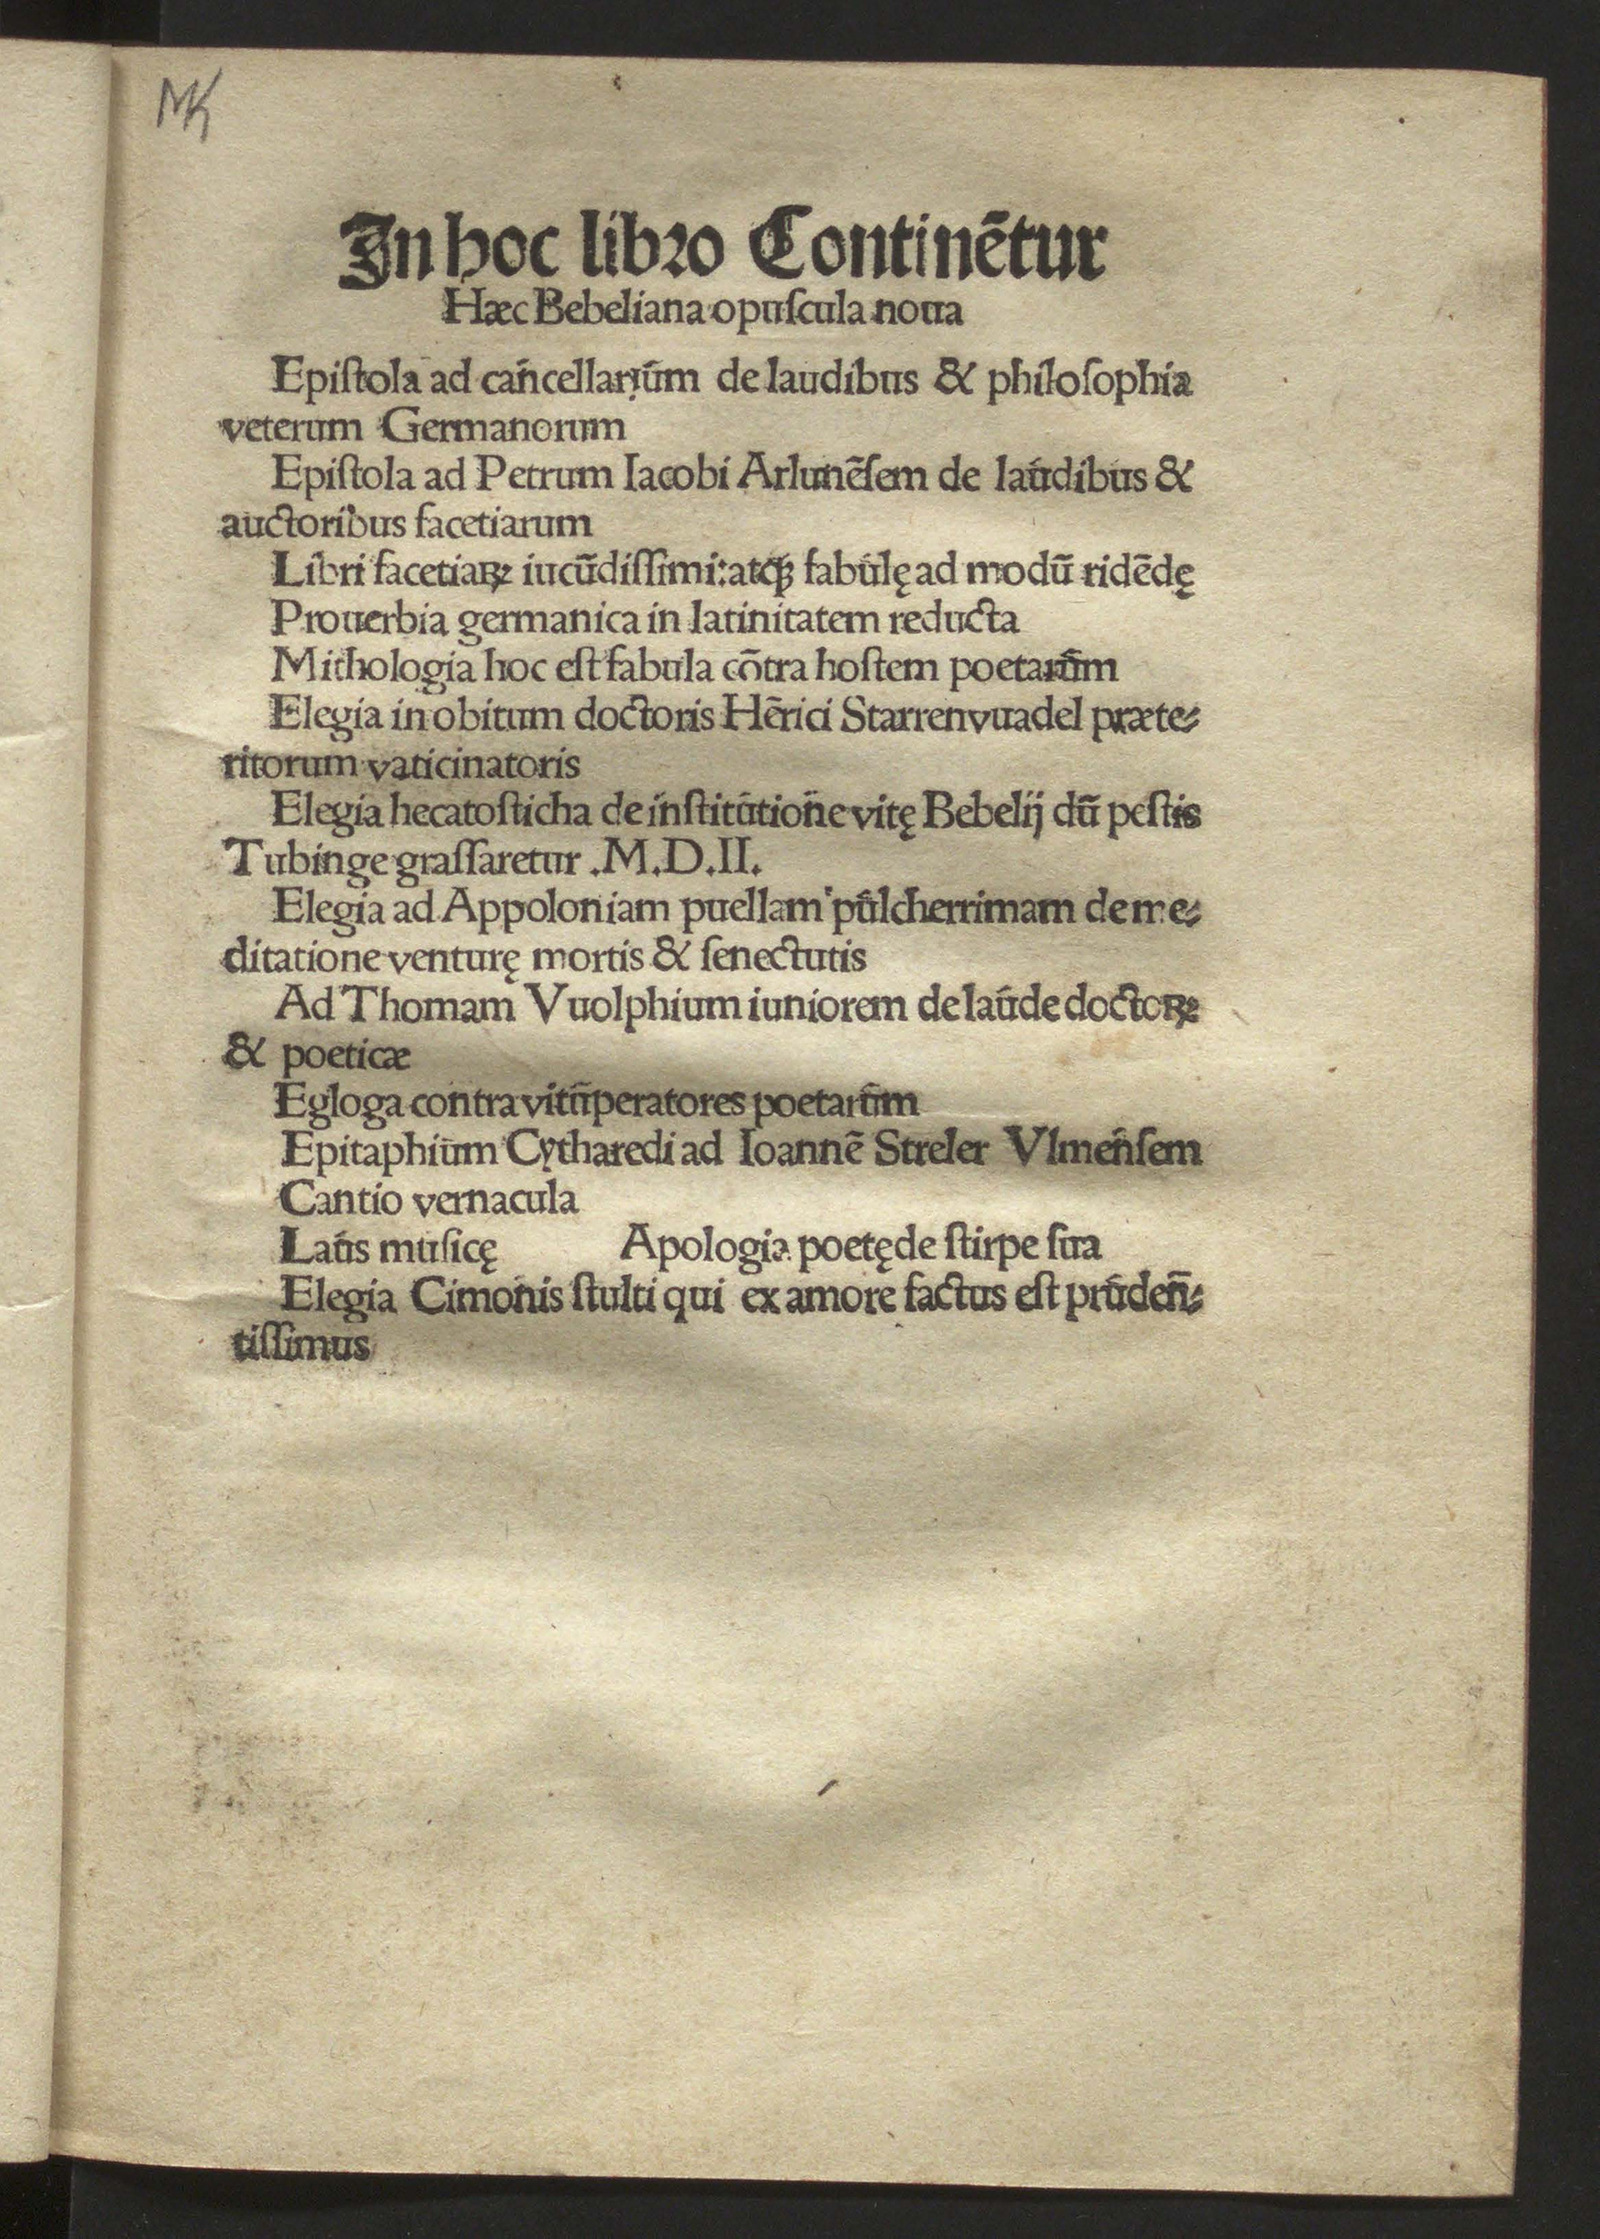 MK
In hoc libro Continētur
Hæc Bebeliana opuſcula noua
Epiſtola ad cancellarium de laudibus & philoſophia
veterum Germanorum
Epiſtola ad Petrum Iacobi Arlunēſem de laudibus &
auctoribus facetiarum
Libri facetiaꝝ iucūdiſſimi: atqꝫ fabulę ad modū ridēdę
Prouerbia germanica in latinitatem reducta
Mithologia hoc eſt fabula cōtra hoſtem poetarum
Elegia in obitum doctoris Hērici Starrenvuadel præte⸗
ritorum vaticinatoris
Elegia hecatoſticha de inſtitutione vitę Bebelij dū peſtis
Tubinge graſſaretur .M.D.II.
Elegia ad Appoloniam puellam pulcherrimam de me⸗
ditatione venturę mortis & ſenectutis
Ad Thomam Vuolphium iuniorem de laude doctoꝝ
& poeticæ
Egloga contra vituperatores poetarum
Epitaphium Cytharedi ad Ioannē Streler Vlmenſem
Cantio vernacula
Laus muſicę Apologia poetę de ſtirpe ſua
Elegia Cimonis ſtulti qui ex amore factus eſt pruden⸗
tiſſimus